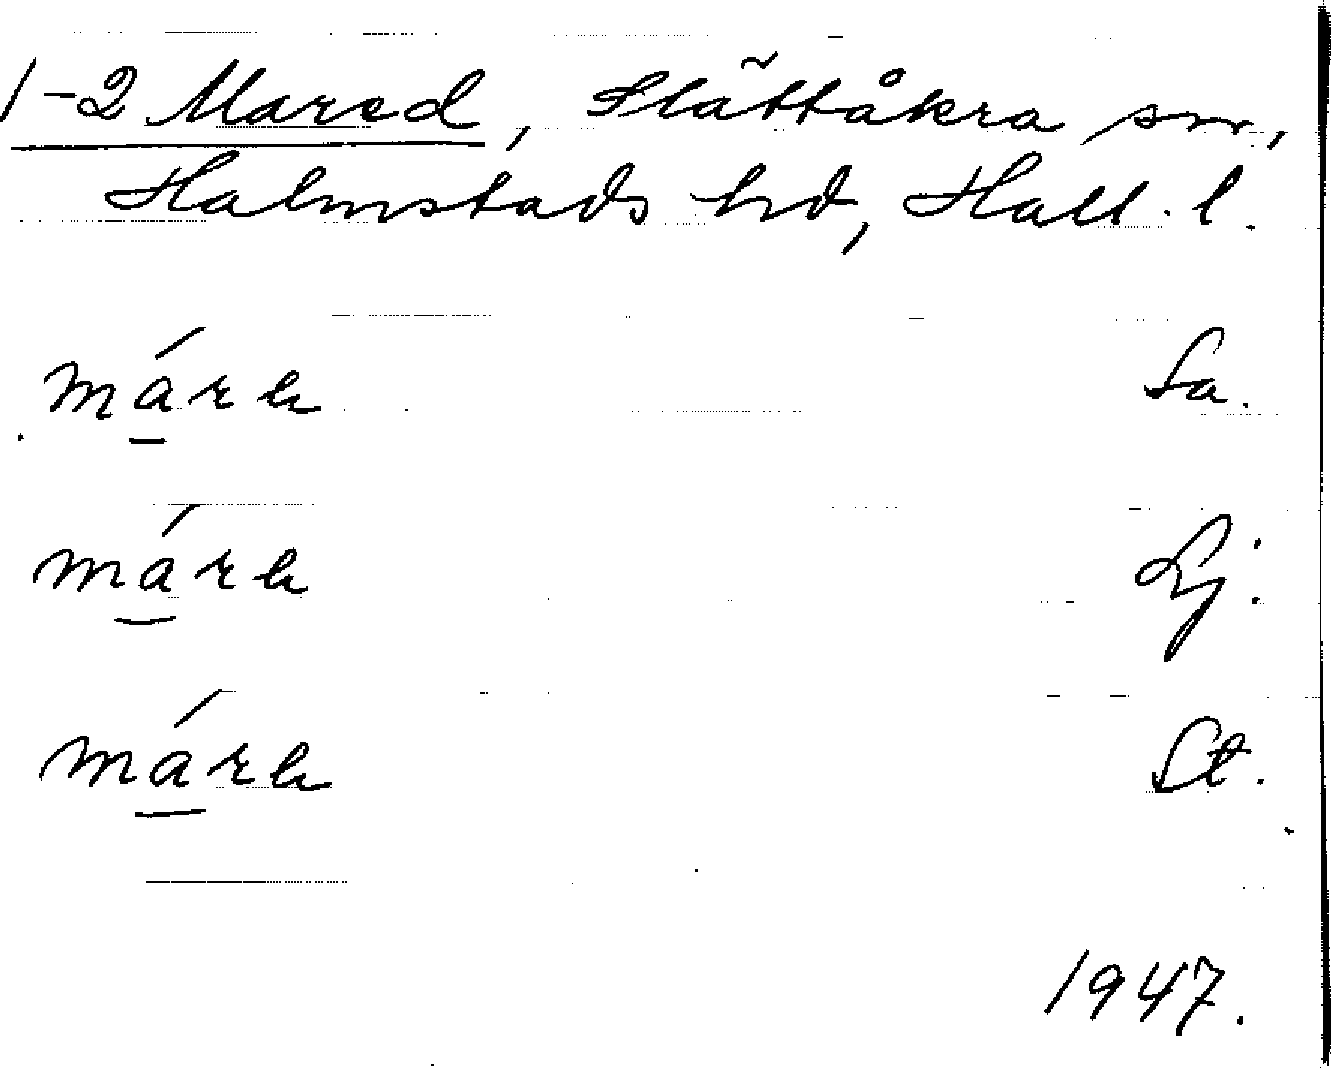 1-2 Mared, Slättåkra sn,
Halmstads hd, Hall. l.
márɛ Sa.
márɛ Lj.
márɛ St.
1947.